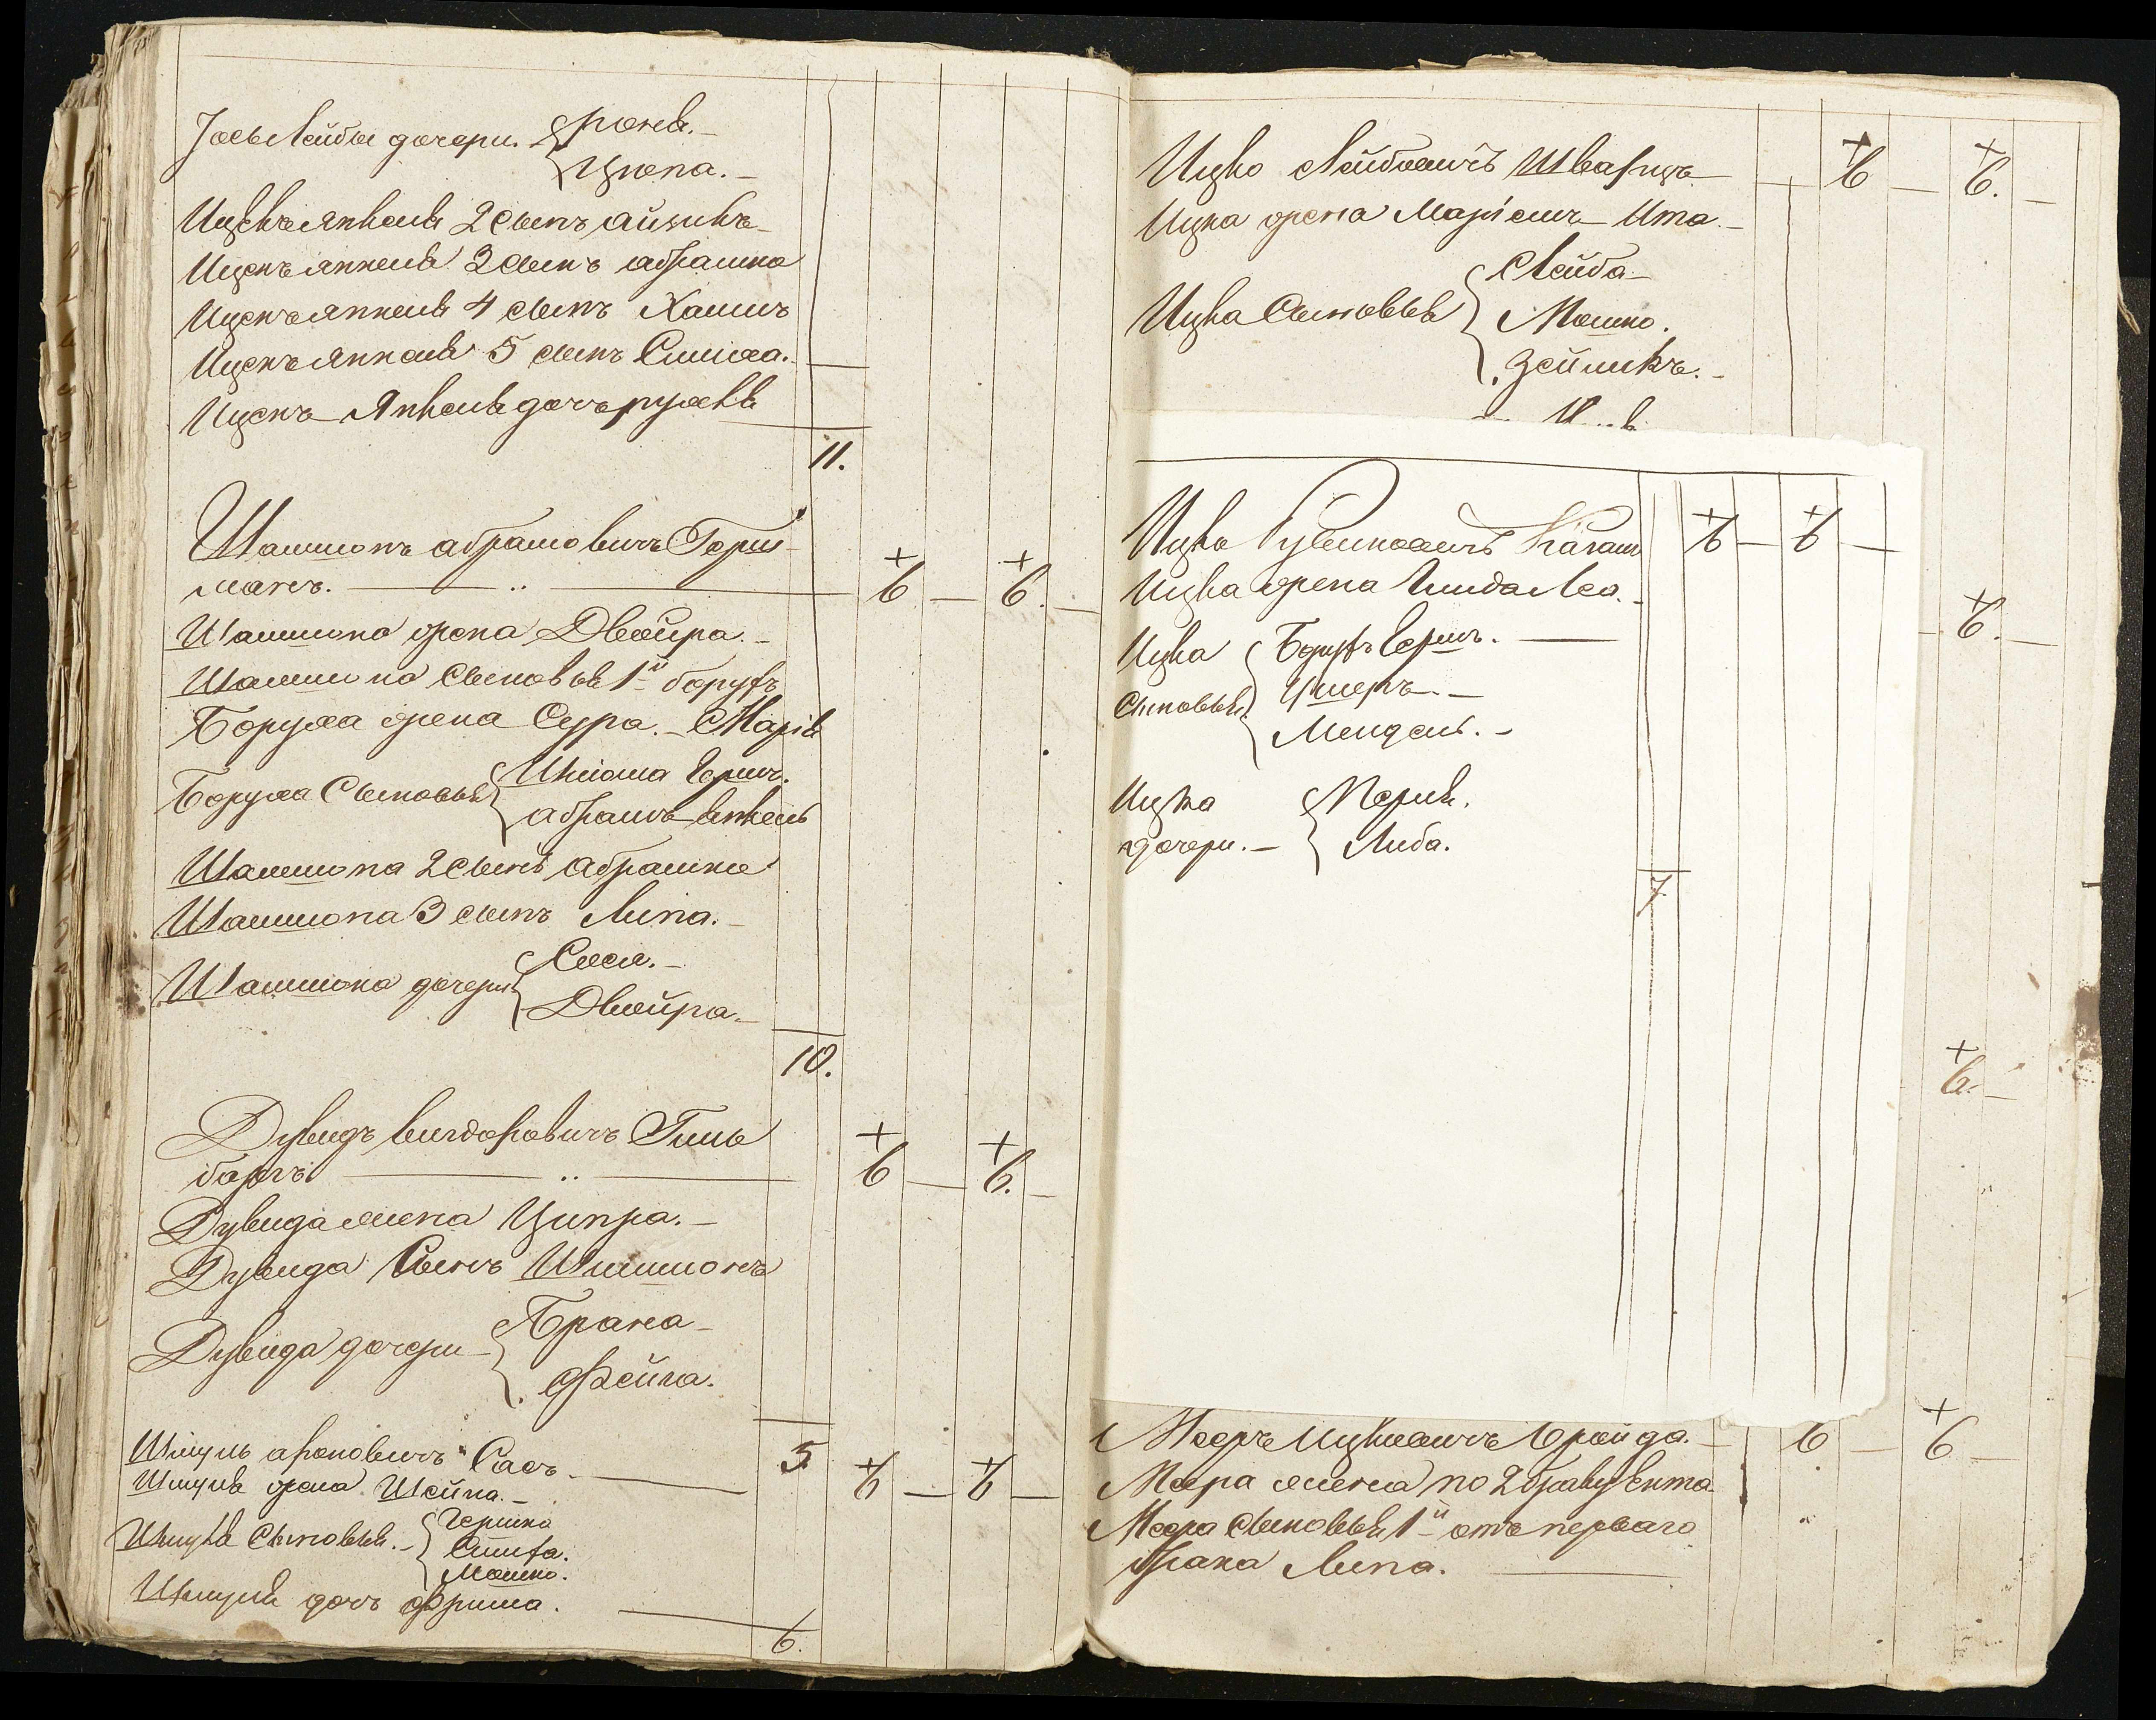 дочери. Роня.
Ципа.
Ицекъ Янкеля 2 сынъ Айзикъ
Ицекъ Янкеля 3 сынъ Абрамко
Ицекъ Янкеля 4 сынъ Хаимъ
Ицекъ Янкеля 5 сынъ Симха.
Ицекъ Янкеля дочь Рухля
11.
Шлиомъ Абрамовичъ Герш-
манъ.
6 6.
Шлиома жена Двойра.
Шлиома сыновья 1й Борухъ
Боруха жена Сура. Марія
Боруха сыновья Шлиома Гершъ.
Абрамъ Янкель
Шлиома 2 сынъ Абрамко
Шлиома 3 сынъ Липа.
Шлиома дочери Сося.
Двойра.
10.
Дувидъ Вигдоровичъ Гинь
баргъ
6 6.
Дувида жена Ципра.
Дувида сынъ Шлиомъ
Дувида дочери Брана
Фейга.
5
Шмуль Ароновичъ Сасъ.
6 6
Шмуля жена Шейна.
Шмуля сыновья. Гершко
Симха.
Мошко.
Шмуля дочь Фрима.
6.
Ицко Лейбовичъ Шварцъ
6 6.
Ицка жена Маріемъ Ита.
Ицка сыновья Лейба
Мошко.
Зейликъ.
Ицко Рувиновичъ Каган
6 6
Ицка жена Гинда Леа.
6.
Ицка Борухъ Гершъ.
сыновья Ицекъ.
Мендель.
Ицка Перля.
дочери. Либа.
7
6.
Мееръ Ицковичъ Бройда.
6 6
Меера жена по 2 браку Ента
Меера сыновья 1й отъ перваго
брака Липа.